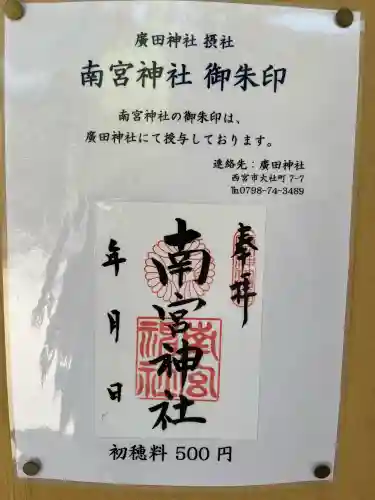 廣田神社 摂社
南宮神社 御朱印
南宮神社の御朱印は、
廣田神社にて授与しております。
連絡先：廣田神社
西宮市大社町 7-7
℡0798-74-3489
奉拝
南宮神社
南宮神社
年 月 日
初穂料 500 円